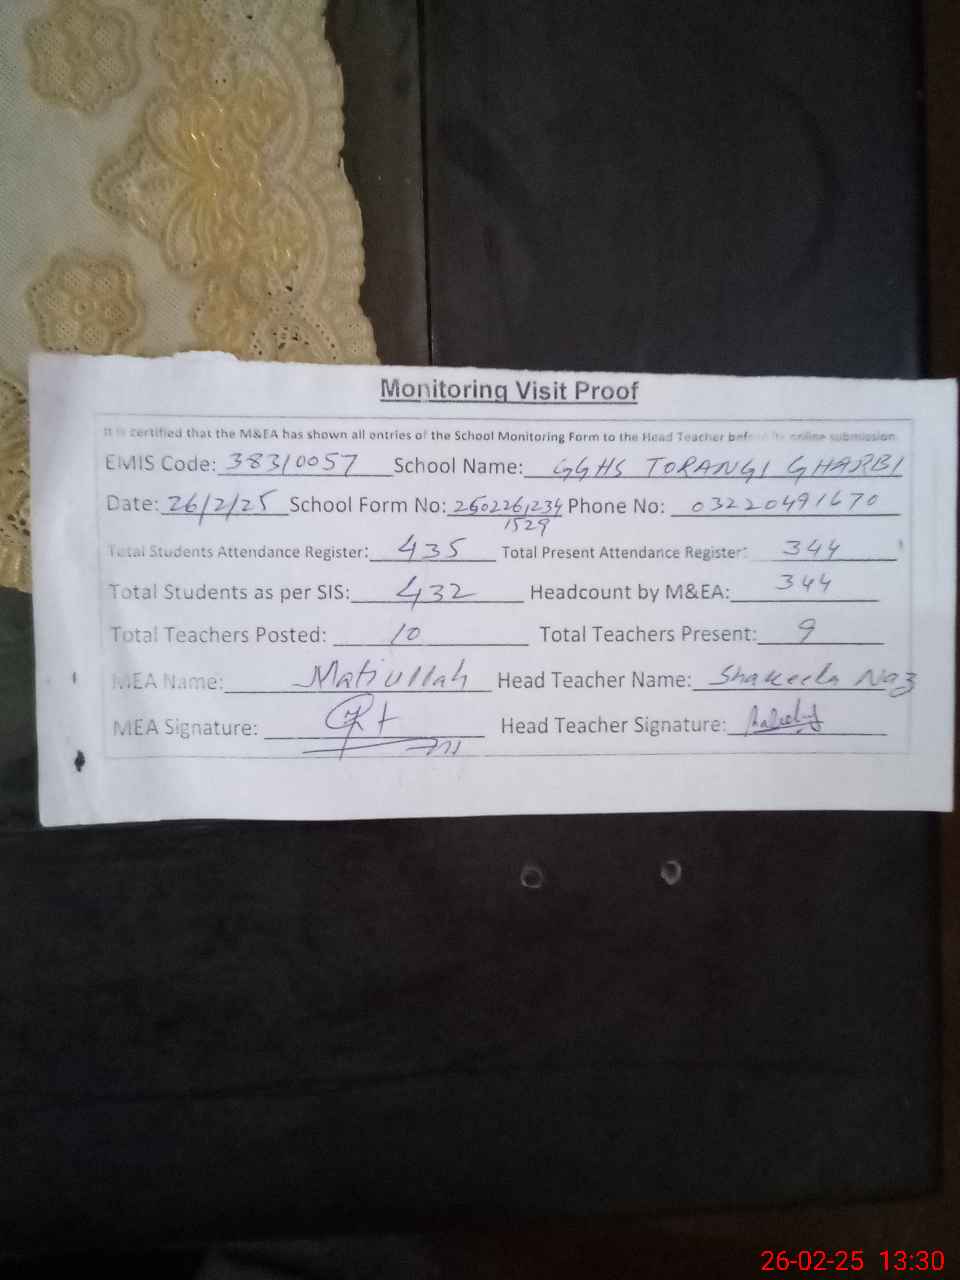 Monitoring Visit Proof
It is certified that the M&EA has shown all entries of the School Monitoring Form to the Head Teacher before its online submission.
EMIS Code: 38310057 School Name: GGHS TORANGI GHARBI
Date: 26/2/25 School Form No: 2502261234 Phone No: 03220491670
1529
Total Students Attendance Register: 435 Total Present Attendance Register: 344
Total Students as per SIS: 432 Headcount by M&EA: 344
Total Teachers Posted: 10 Total Teachers Present: 9
MEA Name: Matiullah Head Teacher Name: Shakeela Naz
MEA Signature: Head Teacher Signature:
26-02-25 13:30